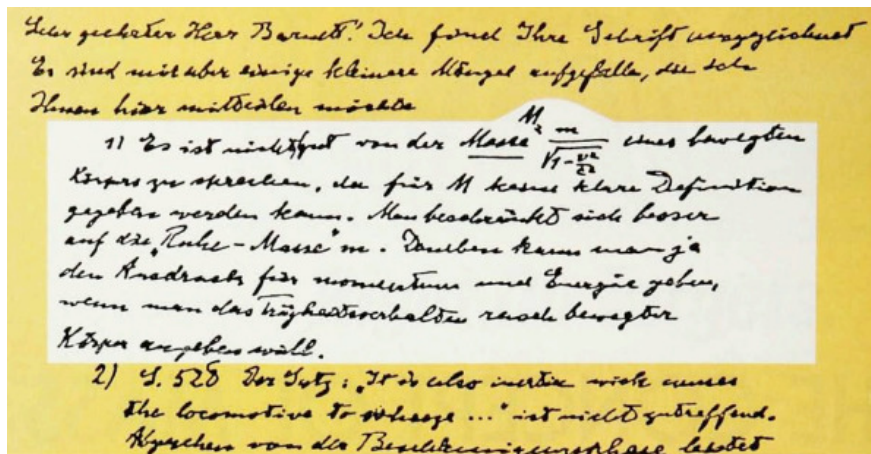 Sehr geehrter Herr Barnett! Ich find Ihre Schrift ausgezeichnet
Es sind mir aber einige kleinere Mängel aufgefalle, die ich
Ihnen hier mitteilen möchte
1) Es ist nicht gut von der Masse M = m/√(1-v²/c²) eines bewegten
Körpers zu sprechen, da für M keine klare Definition
gegeben werden kann. Man beschränkt sich besser
auf die „Ruhe-Masse" m. Daneben kann man ja
den Ausdruck für momentum und Energie geben,
wenn man das Trägheitsverhalten rasch bewegter
Körper angeben will.
2) S. 528 Der Satz: „It is also inertia wich causes
the locomotive to wheeze ..." ist nicht zutreffend.
Abgesehen von der Beschleunigungsphase leistet